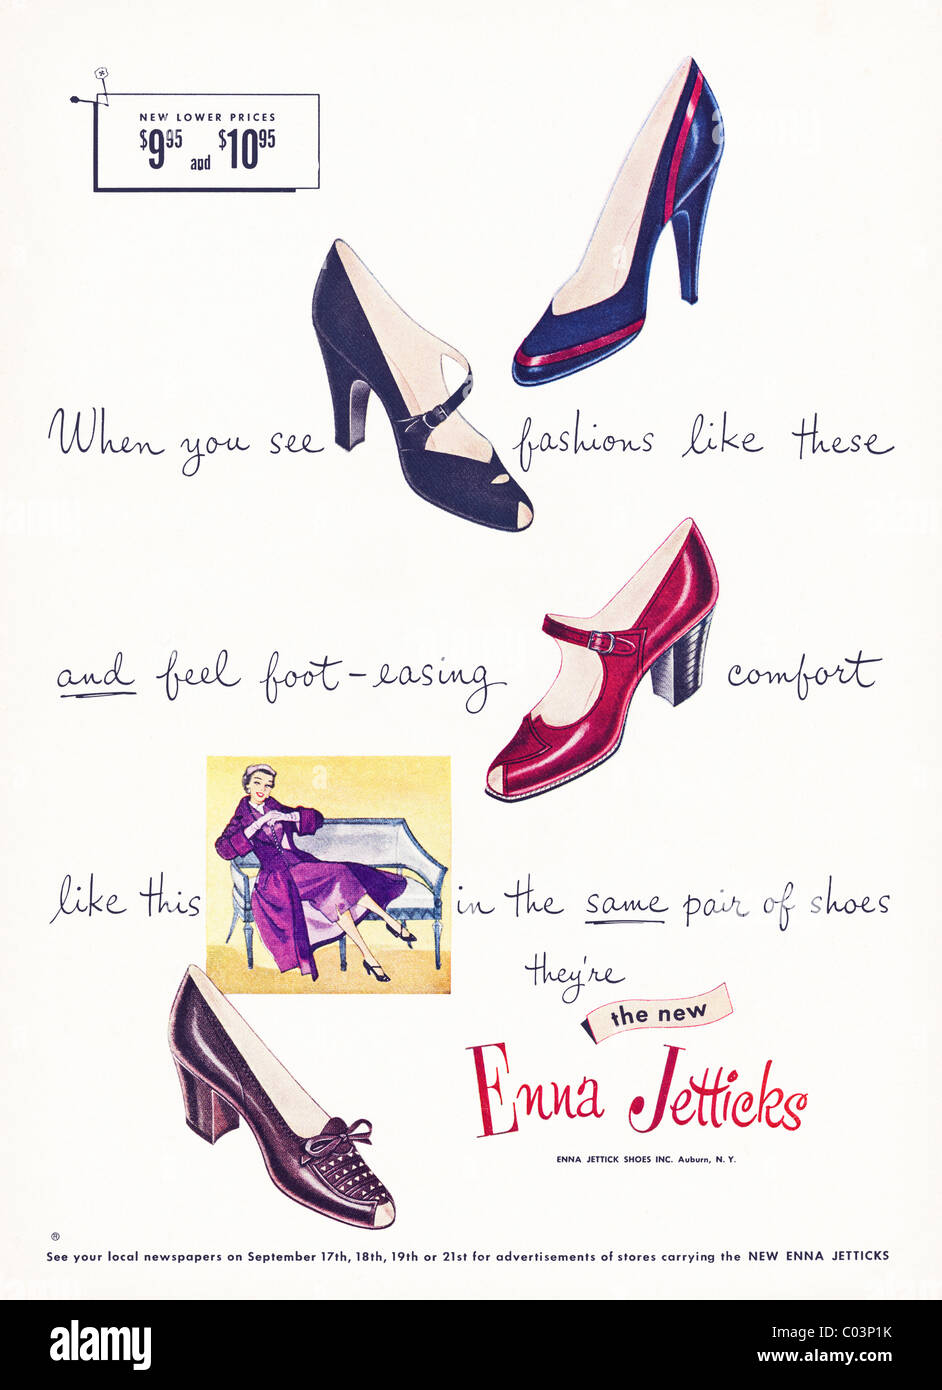 NEW LOWER PRICES
$9.95 and $10.95
When you see fashions like these
and feel foot-easing comfort
like this in the same pair of shoes
they're
the new
Enna Jetticks
ENNA JETTICK SHOES INC. Auburn, N. Y.
®
See your local newspapers on September 17th, 18th, 19th or 21st for advertisements of stores carrying the NEW ENNA JETTICKS
alamy
Image ID: C03P1K
www.alamy.com